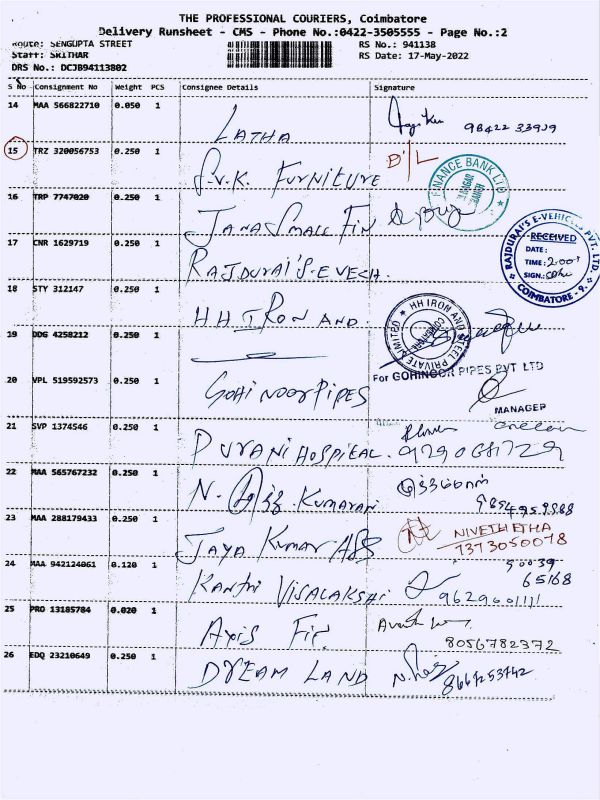 THE PROFESSIONAL COURIERS, Coimbatore
Delivery Runsheet - CMS - Phone No.:0422-3505555 - Page No.:2
Route: SENGUPTA STREET
RS No.: 941138
Staff: SRITHAR
RS Date: 17-May-2022
DRS No.: DCJB94113802
S No Consignment No Weight PCS Consignee Details Signature
14 MAA 566822710 0.050 1 LATHA 98422 33919
15 TRZ 320056753 0.250 1 S.V.K. FURNITURE D/L
FINANCE BANK LTD
16 TRP 7747020 0.250 1 JANA SMALL FIN
17 CNR 1629719 0.250 1 RAJDURAI'S-EVECH.
RAJDURAI'S E-VEHICLES PVT. LTD.
RECEIVED
DATE:
TIME: 2.00
SIGN.:
COIMBATORE - 9.
18 STY 312147 0.250 1 HH IRON AND
HH IRON AND STEEL PRIVATE LIMITED
COIMBATORE
19 DDG 4258212 0.250 1
20 VPL 519592573 0.250 1 GOHINOOR PIPES
For GOHINOOR PIPES PVT LTD
MANAGER
21 SVP 1374546 0.250 1 DURANI HOSPITAL.
22 MAA 565767232 0.250 1 N. KUMARAN
23 MAA 288179433 0.250 1 JAYA KUMAR ASS
NIVETHETHA
7373050078
24 MAA 942124061 0.120 1 KANTHI VISALAKSHI 9629601111
50039
65168
25 PRO 13185784 0.020 1 AXIS FIN.
8056782372
26 EDQ 23210649 0.250 1 DREAM LAND